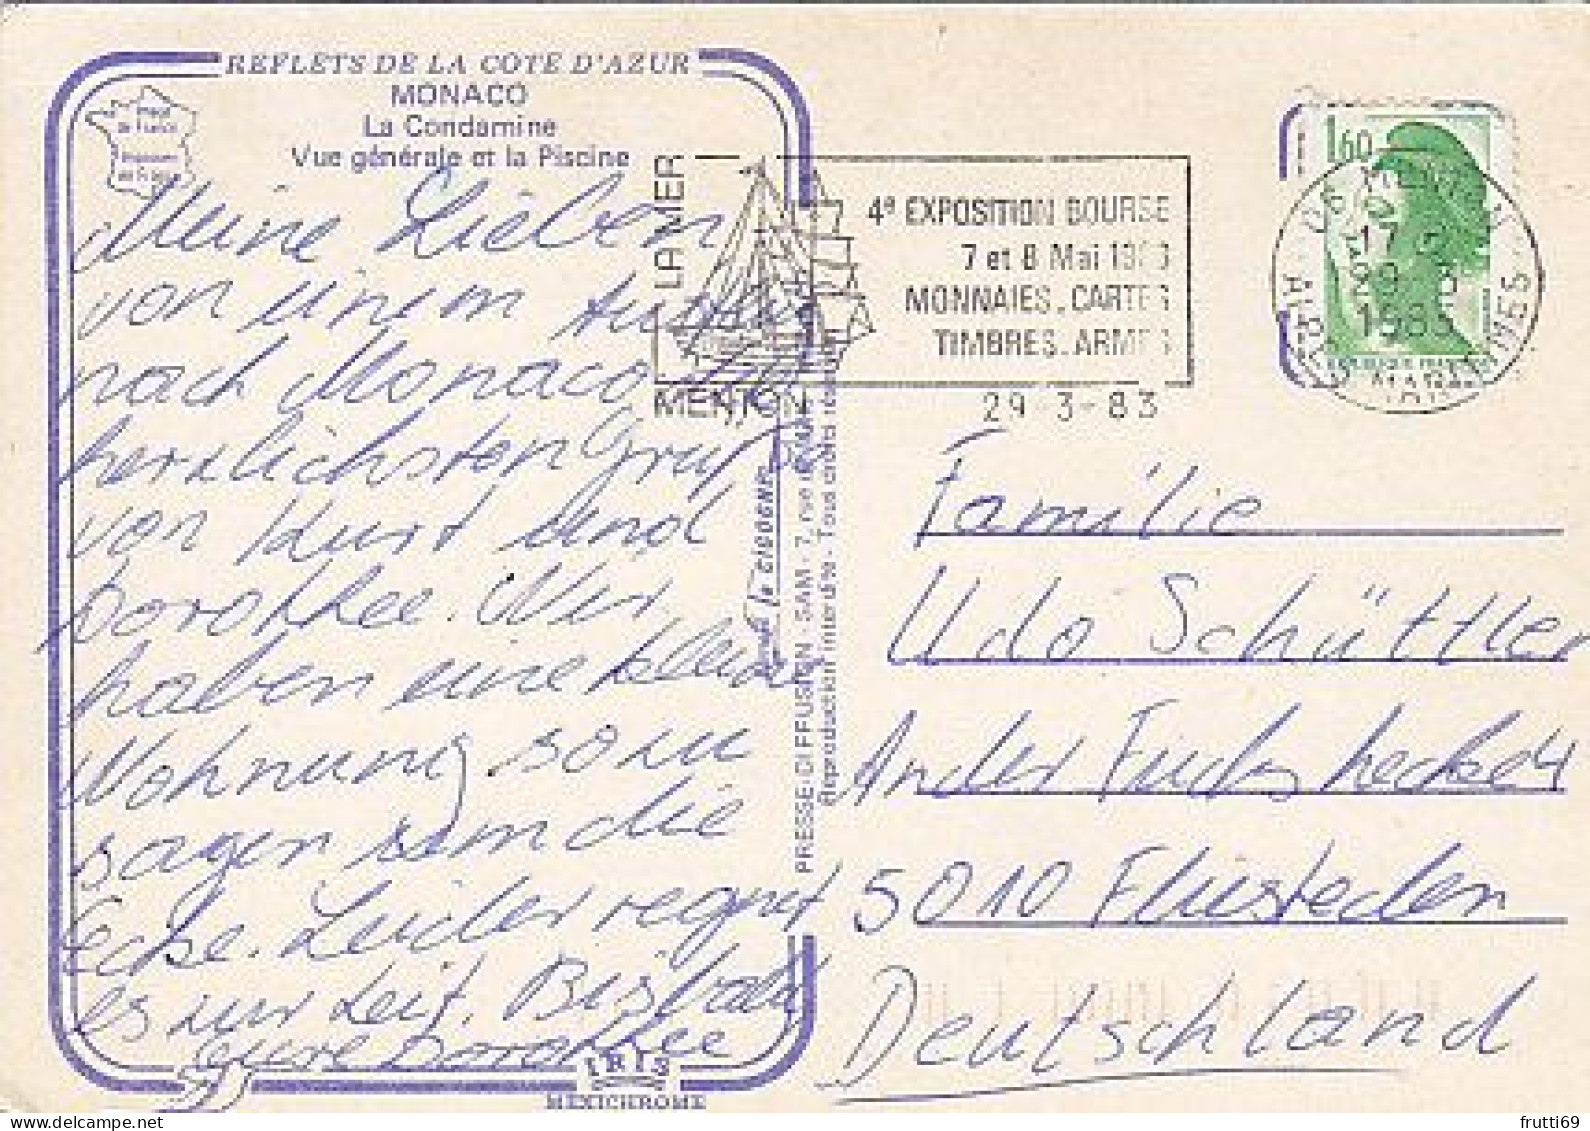 REFLETS DE LA COTE D'AZUR
MONACO
La Condamine
Vue générale et la Piscine
Meine Lieben
von einem Ausflug
nach Monaco die
herzlichsten Grüße
von Kurt und
Dorothee. Wir
haben eine kleine
Wohnung
sagen die
Ecke. Leider regnet
es zur Zeit. Bis bald
eure Dorothee
IRIS
MEXICHROME
PRESSE-DIFFUSION - SAM - 7, rue
Reproduction interdite - Tous droits réservés
LA MER
MENTON
4e EXPOSITION BOURSE
7 et 8 Mai 1983
MONNAIES. CARTES
TIMBRES. ARMES
29-3-83
1,60
06 MENTON
17 H
29-3
1983
ALPES MARITIMES
Familie
Udo Schüttler
An der Fuchshecke 4
5010 Fliesteden
Deutschland
frutti69